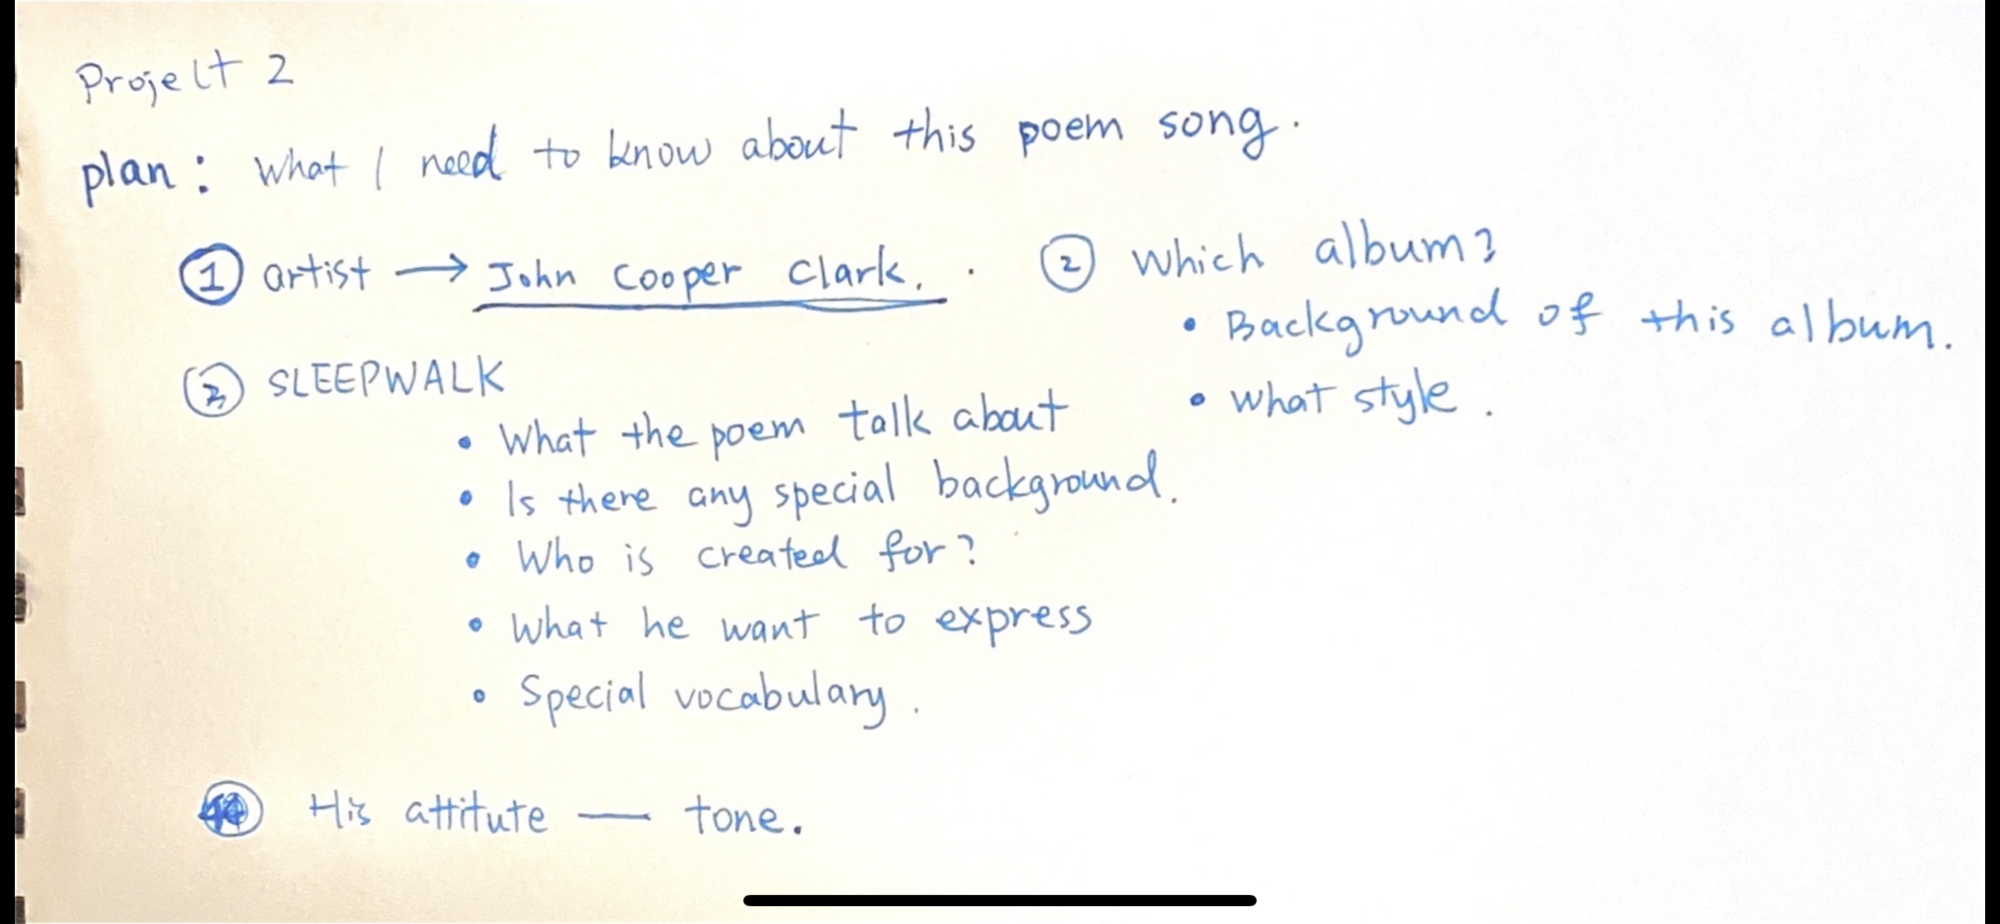 Project 2
plan: What I need to know about this poem song.
① artist → John Cooper Clark.
② Which album?
• Background of this album.
• What style.
③ SLEEPWALK
• What the poem talk about
• Is there any special background.
• Who is created for?
• What he want to express
• Special vocabulary.
④ His attitute — tone.